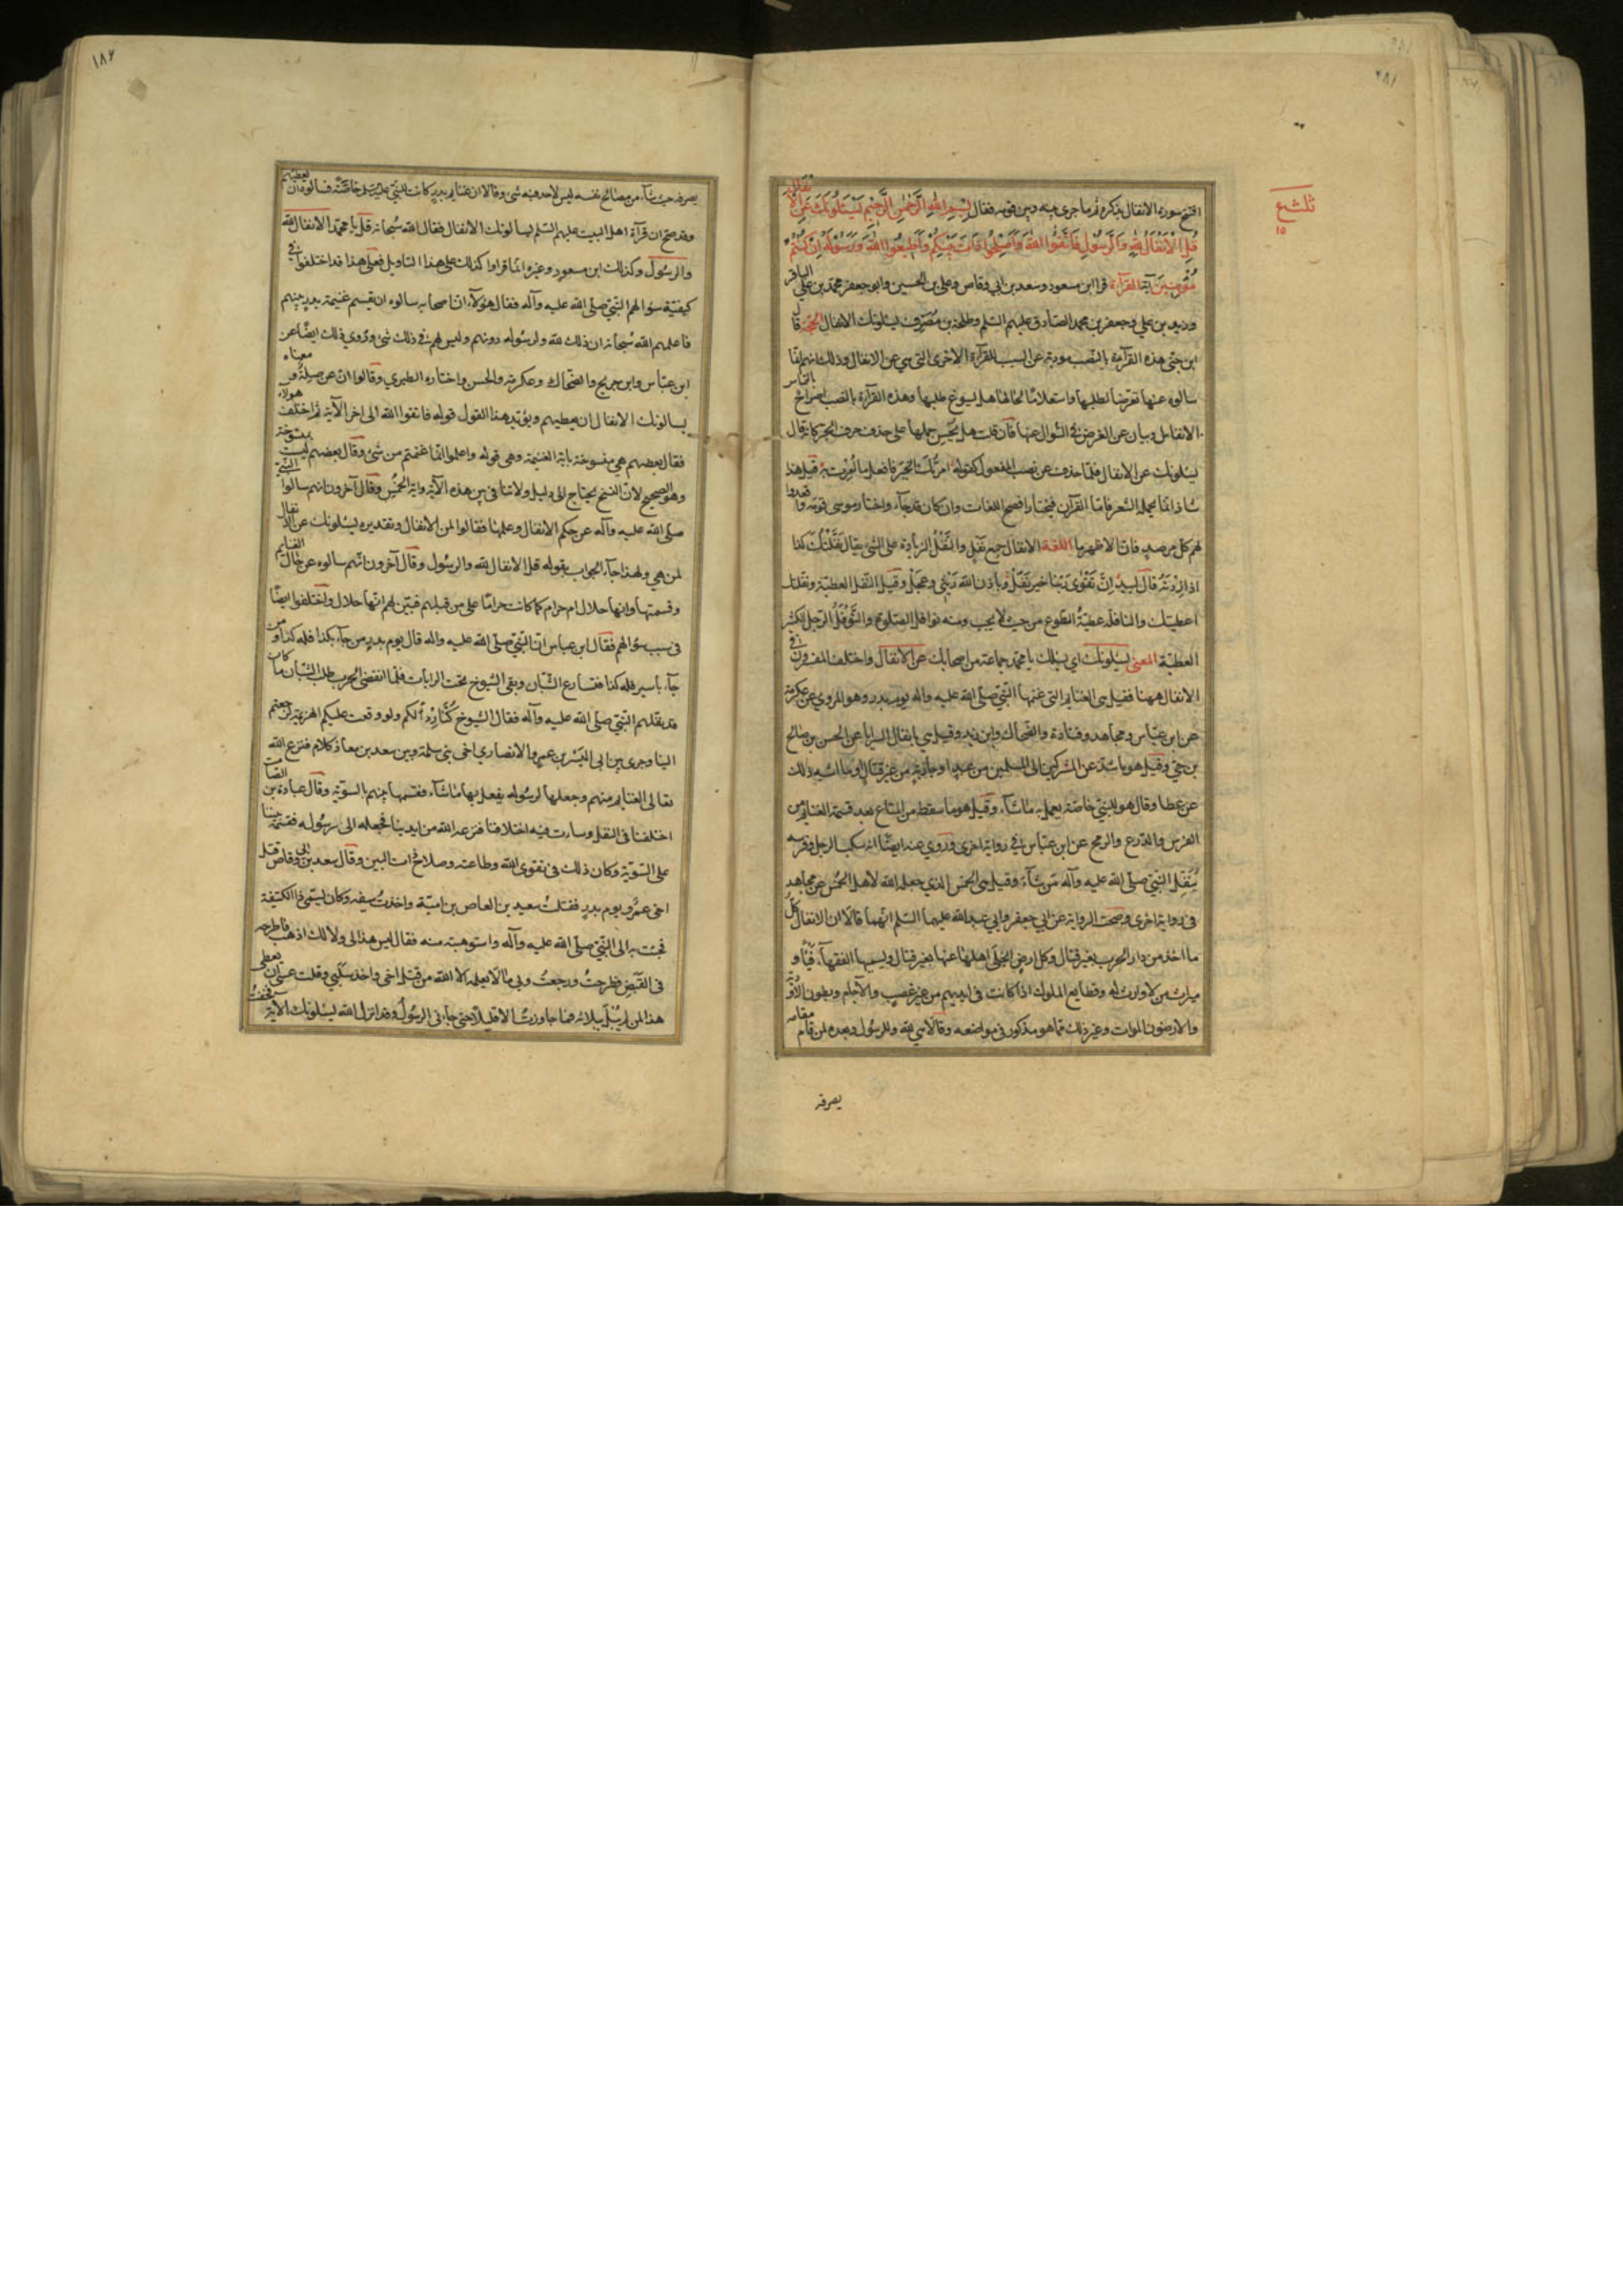 افتتح سورة الانفال بذكرهم ثم ما جرى بينه وبين قومه فقال بسم الله الرحمن الرحيم يسئلونك عن الانفال
قل الانفال لله والرسول فاتقوا الله واصلحوا ذات بينكم واطيعوا الله ورسوله ان كنتم
مؤمنين آية القرآءة قرا ابن مسعود وسعد بن ابي وقاص وعلي بن الحسين وابو جعفر محمد بن علي الباقر
وزيد بن علي وجعفر بن محمد الصادق عليهم السلم وطلحة بن مصرف يسئلونك الانفال الحجة قال
ابن جني هذه القرآءة بالنصب مودية عن السبب للقرآءة الاخرى التي هي عن الانفال وذلك انهم انما
سالوه عنها تعرضا لطلبها واستعلاما لحالها هل يسوغ طلبها وهذه القرآءة بالنصب اصراح بالتماس
الانفال وبيان عن الغرض في السوال عنها فان قلت هل يحسن حملها على حذف حرف الجر كانه قال
يسئلونك عن الانفال فلما حذف عن نصب المفعول كقوله امرتك الخير فافعل ما امرت به قيل هذا
شاذ انما يحمله الشعر فاما القرآن فيختار افصح اللغات وان كان قد جآء واختار موسى قومه واقعدوا
لهم كل مرصد فان الاظهر ما اللغة الانفال جمع نفل والنفل الزيادة على الشئ يقال نفلتك كذا
اذا زدته قال لبيد ان تقوى ربنا خير نفل وباذن الله ريثي وعجل وقيل النفل العطية ونفلتك
اعطيتك والنافلة عطية التطوع من حيث لا يجب ومنه نوافل الصلوة والنوفل الرجل الكثير
العطية المعنى يسئلونك اي يسئلك يا محمد جماعة من اصحابك عن الانفال واختلف المفسرون في
الانفال ههنا فقيل هي الغنايم التي غنمها النبي صلى الله عليه واله يوم بدر وهو المروي عن عكرمة
عن ابن عباس ومجاهد وقتادة والضحاك وابن زيد وقيل هي انفال السرايا عن الحسن بن صالح
بن حي وقيل هو ما شذ عن المشركين الى المسلمين من عبد او جارية من غير قتال او ما اشبه ذلك
عن عطا وقال هو للنبي خاصة يعمل به ما شآء وقيل هو ما سقط من المتاع بعد قسمة الغنايم من
الفرس والدرع والرمح عن ابن عباس في رواية اخرى وروي عنه ايضا انه سلب الرجل وفرسه
ينفل النبي صلى الله عليه وآله من شآء وقيل هي الخمس الذي جعله الله لاهل الخمس عن مجاهد
في رواية اخرى وصحت الرواية عن ابي جعفر وابي عبد الله عليهما السلم انهما قالا ان الانفال كل
ما اخذ من دار الحرب بغير قتال وكل ارض انجلى اهلها عنها بغير قتال ويسميها الفقهآء فيئا و
ميراث من لا وارث له وقطايع الملوك اذا كانت في ايديهم من غير غصب والآجام وبطون الاودية
والارضون الموات وغير ذلك مما هو مذكور في مواضعه وقالا هي لله وللرسول وبعده لمن قام مقامه
يصرفه
يصرفه حيث شآء من مصالح نفسه ليس لاحد فيه شئ وقالا ان غنايم بدر كانت للنبي عليه السلم خاصة فسالوه ان يعطيهم
وقد صح ان قرآءة اهل البيت عليهم السلم يسالونك الانفال فقال الله سبحانه قل يا محمد الانفال لله
والرسول وكذلك ابن مسعود وغيره انما قراوا كذلك على هذا التاويل فعلى هذا فقد اختلفوا في
كيفية سوالهم النبي صلى الله عليه وآله فقال هؤلآء ان اصحابه سالوه ان يقسم غنيمة بدر بينهم
فاعلمهم الله سبحانه ان ذلك لله ولرسوله دونهم وليس لهم في ذلك شئ وروي ذلك ايضا عن
ابن عباس وابن جريج والضحاك وعكرمة والحسن واختاره الطبري وقالوا ان عن صلة ومعناه
يسالونك الانفال ان يعطيهم ويؤيد هذا القول قوله فاتقوا الله الى اخر الآية ثم اختلف هولآء
فقال بعضهم هي منسوخة بآية الغنيمة وهي قوله واعلموا انما غنمتم من شئ وقال بعضهم ليست بمنسوخة
وهو الصحيح لان النسخ يحتاج الى دليل ولا تنافي بين هذه الآية واية الخمس وقال آخرون انهم سالوا النبي
صلى الله عليه وآله عن حكم الانفال وعلمها فقالوا لمن الانفال وتقديره يسئلونك عن الانفال
لمن هي ولهذا جآء الجواب بقوله قل الانفال لله والرسول وقال آخرون انهم سالوه عن حال الغنايم
وقسمتها وانها حلال ام حرام كما كانت حراما على من قبلهم فبين لهم انها حلال واختلفوا ايضا
في سبب سوالهم فقال ابن عباس ان النبي صلى الله عليه واله قال يوم بدر من جآء بكذا فله كذا ومن
جآء باسير فله كذا فتسارع الشبان وبقي الشيوخ تحت الرايات فلما انقضى الحرب طلب الشبان ما كان
قد نفلهم النبي صلى الله عليه وآله فقال الشيوخ كنا ردءا لكم ولو وقعت عليكم الهزيمة لرجعتم
الينا وجرى بين ابي اليسر بن عمرو الانصاري اخي بني سلمة وبين سعد بن معاذ كلام فنزع الله
تعالى الغنايم منهم وجعلها لرسوله يفعل بها ما شآء فقسمها بينهم بالسوية وقال عبادة بن الصامت
اختلفنا في النفل وساءت فيه اخلاقنا فنزعه الله من ايدينا فجعله الى رسوله فقسمه بيننا
على السوية وكان ذلك في تقوى الله وطاعته وصلاح ذات البين وقال سعد بن ابي وقاص قتل
اخي عمير يوم بدر فقتلت سعيد بن العاص بن امية واخذت سيفه وكان يسمى ذا الكتيفة
فجئت به الى النبي صلى الله عليه وآله واستوهبته منه فقال ليس هذا لي ولا لك اذهب فاطرحه
في القبض فطرحت ورجعت وبي ما لا يعلمه الا الله من قتل اخي واخذ سلبي وقلت عسى ان يعطى
هذا لمن لم يبل بلائي فما جاوزت الا قليلا حتى جآءني الرسول وقد انزل الله يسئلونك الآية فخفت